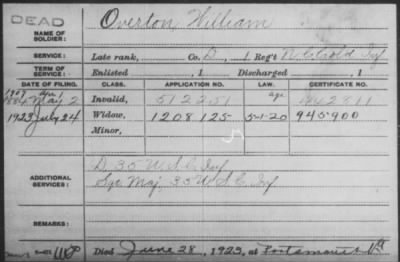 DEAD
Overton, William
NAME OF SOLDIER:
SERVICE:
Late rank, Co. D, 1 Reg't N.C. Col'd Inf
TERM OF SERVICE:
Enlisted , 1 Discharged , 1
DATE OF FILING. CLASS. APPLICATION NO. LAW. CERTIFICATE NO.
May 2 Invalid, 512251
1923 July 24 Widow, 1208125 5-1-20 945900
Minor,
ADDITIONAL SERVICES:
D 35 U.S.C. Inf
Sgt Maj 35 U.S.C. Inf
REMARKS:
Died June 28, 1923, at Portsmouth Va